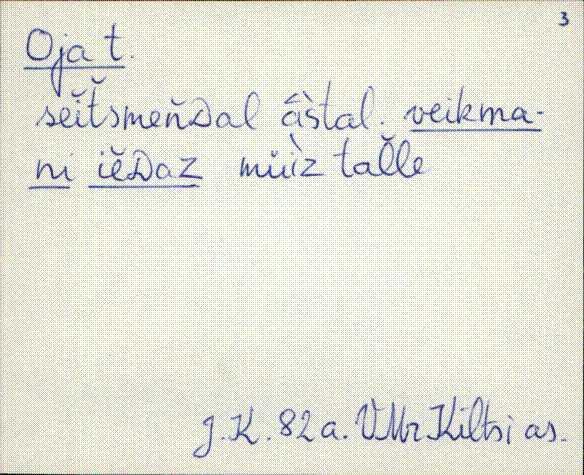 3
Oja t.
seĭt̆smeňDal âš̀tal. veikma-
ni iĕDaz müìz talle
J.K. 82 a. VMr Kiltsi as.